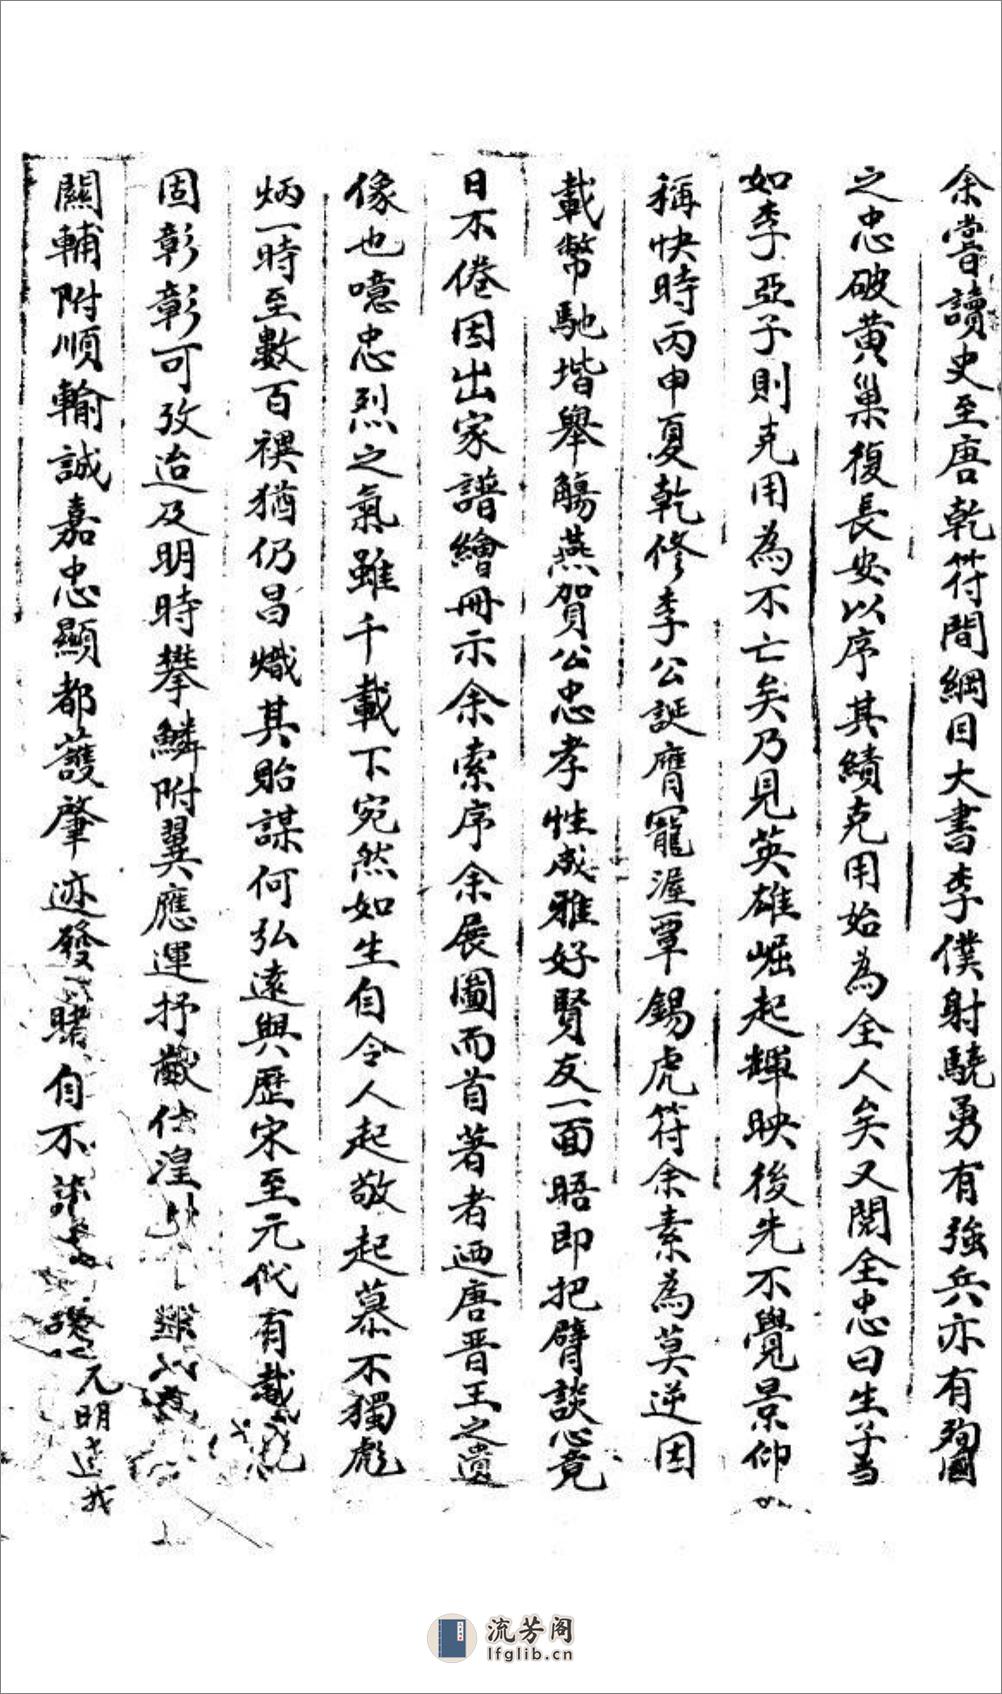 余嘗讀史至唐乾符間綱目大書李僕射驍勇有強兵亦有殉國
之忠破黄巢復長安以序其績克用始為全人矣又閲全忠曰生子當
如李亞子則克用為不亡矣乃見英雄崛起輝映後先不覺景仰
稱快時丙申夏乾修李公誕膺寵渥覃錫虎符余素為莫逆因
載幣馳堦舉觴燕賀公忠孝性成雅好賢友一面晤即把臂談心竟
日不倦因出家譜繪冊示余索序余展圖而首著者迺唐晋王之遺
像也噫忠烈之氣雖千載下宛然如生自令人起敬起慕不獨彪
炳一時至數百禩猶仍昌熾其貽謀何弘遠與歷宋至元代有載
固彰彰可攷迨及明時攀鱗附翼應運抒猷仕湟
關輔附順輸誠嘉忠顯都護肇迹發賭自不
元明迭
流芳阁
lfglib.cn